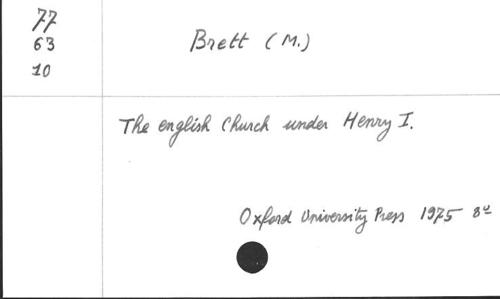 77
63
10
Brett (M.)
The english Church under Henry I.
Oxford University Press 1975 8º